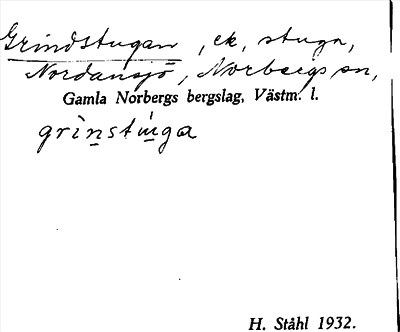 Grindstugan, ek, stuga,
Nordansjö, Norbergs sn,
Gamla Norbergs bergslag, Västm. l.
H. Ståhl 1932.